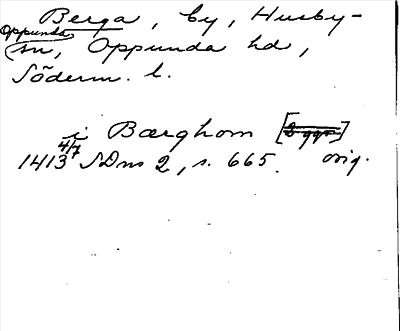 Berga, by, Husby-
Oppunda
sn, Oppunda hd,
Söderm. l.
i Bærghom
1413 4/7 SDns 2, s. 665. orig.